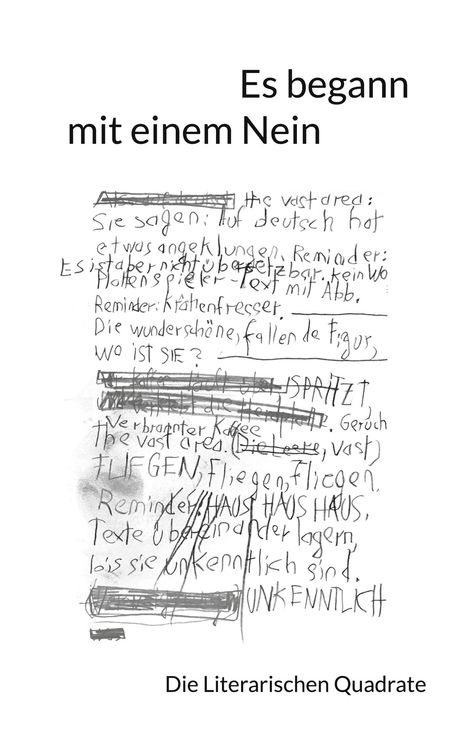 Es begann
mit einem Nein
the vast area:
Sie sagen: Auf deutsch hat
etwas angeklungen. Reminder:
Es ist aber nicht übersetzbar. kein Wo
Plattenspieler-Text mit Abb.
Reminder: Krähenfresser.
Die wunderschöne, fallende Figur,
WO IST SIE?
SPRITZT,
Verbrannter Kaffee Geruch
The vast area. (Die Leere, vast)
FLIEGEN, Fliegen, fliegen.
Reminder: HAUS HAUS HAUS,
Texte übereinander lagern,
bis sie unkenntlich sind.
UNKENNTLICH
Die Literarischen Quadrate